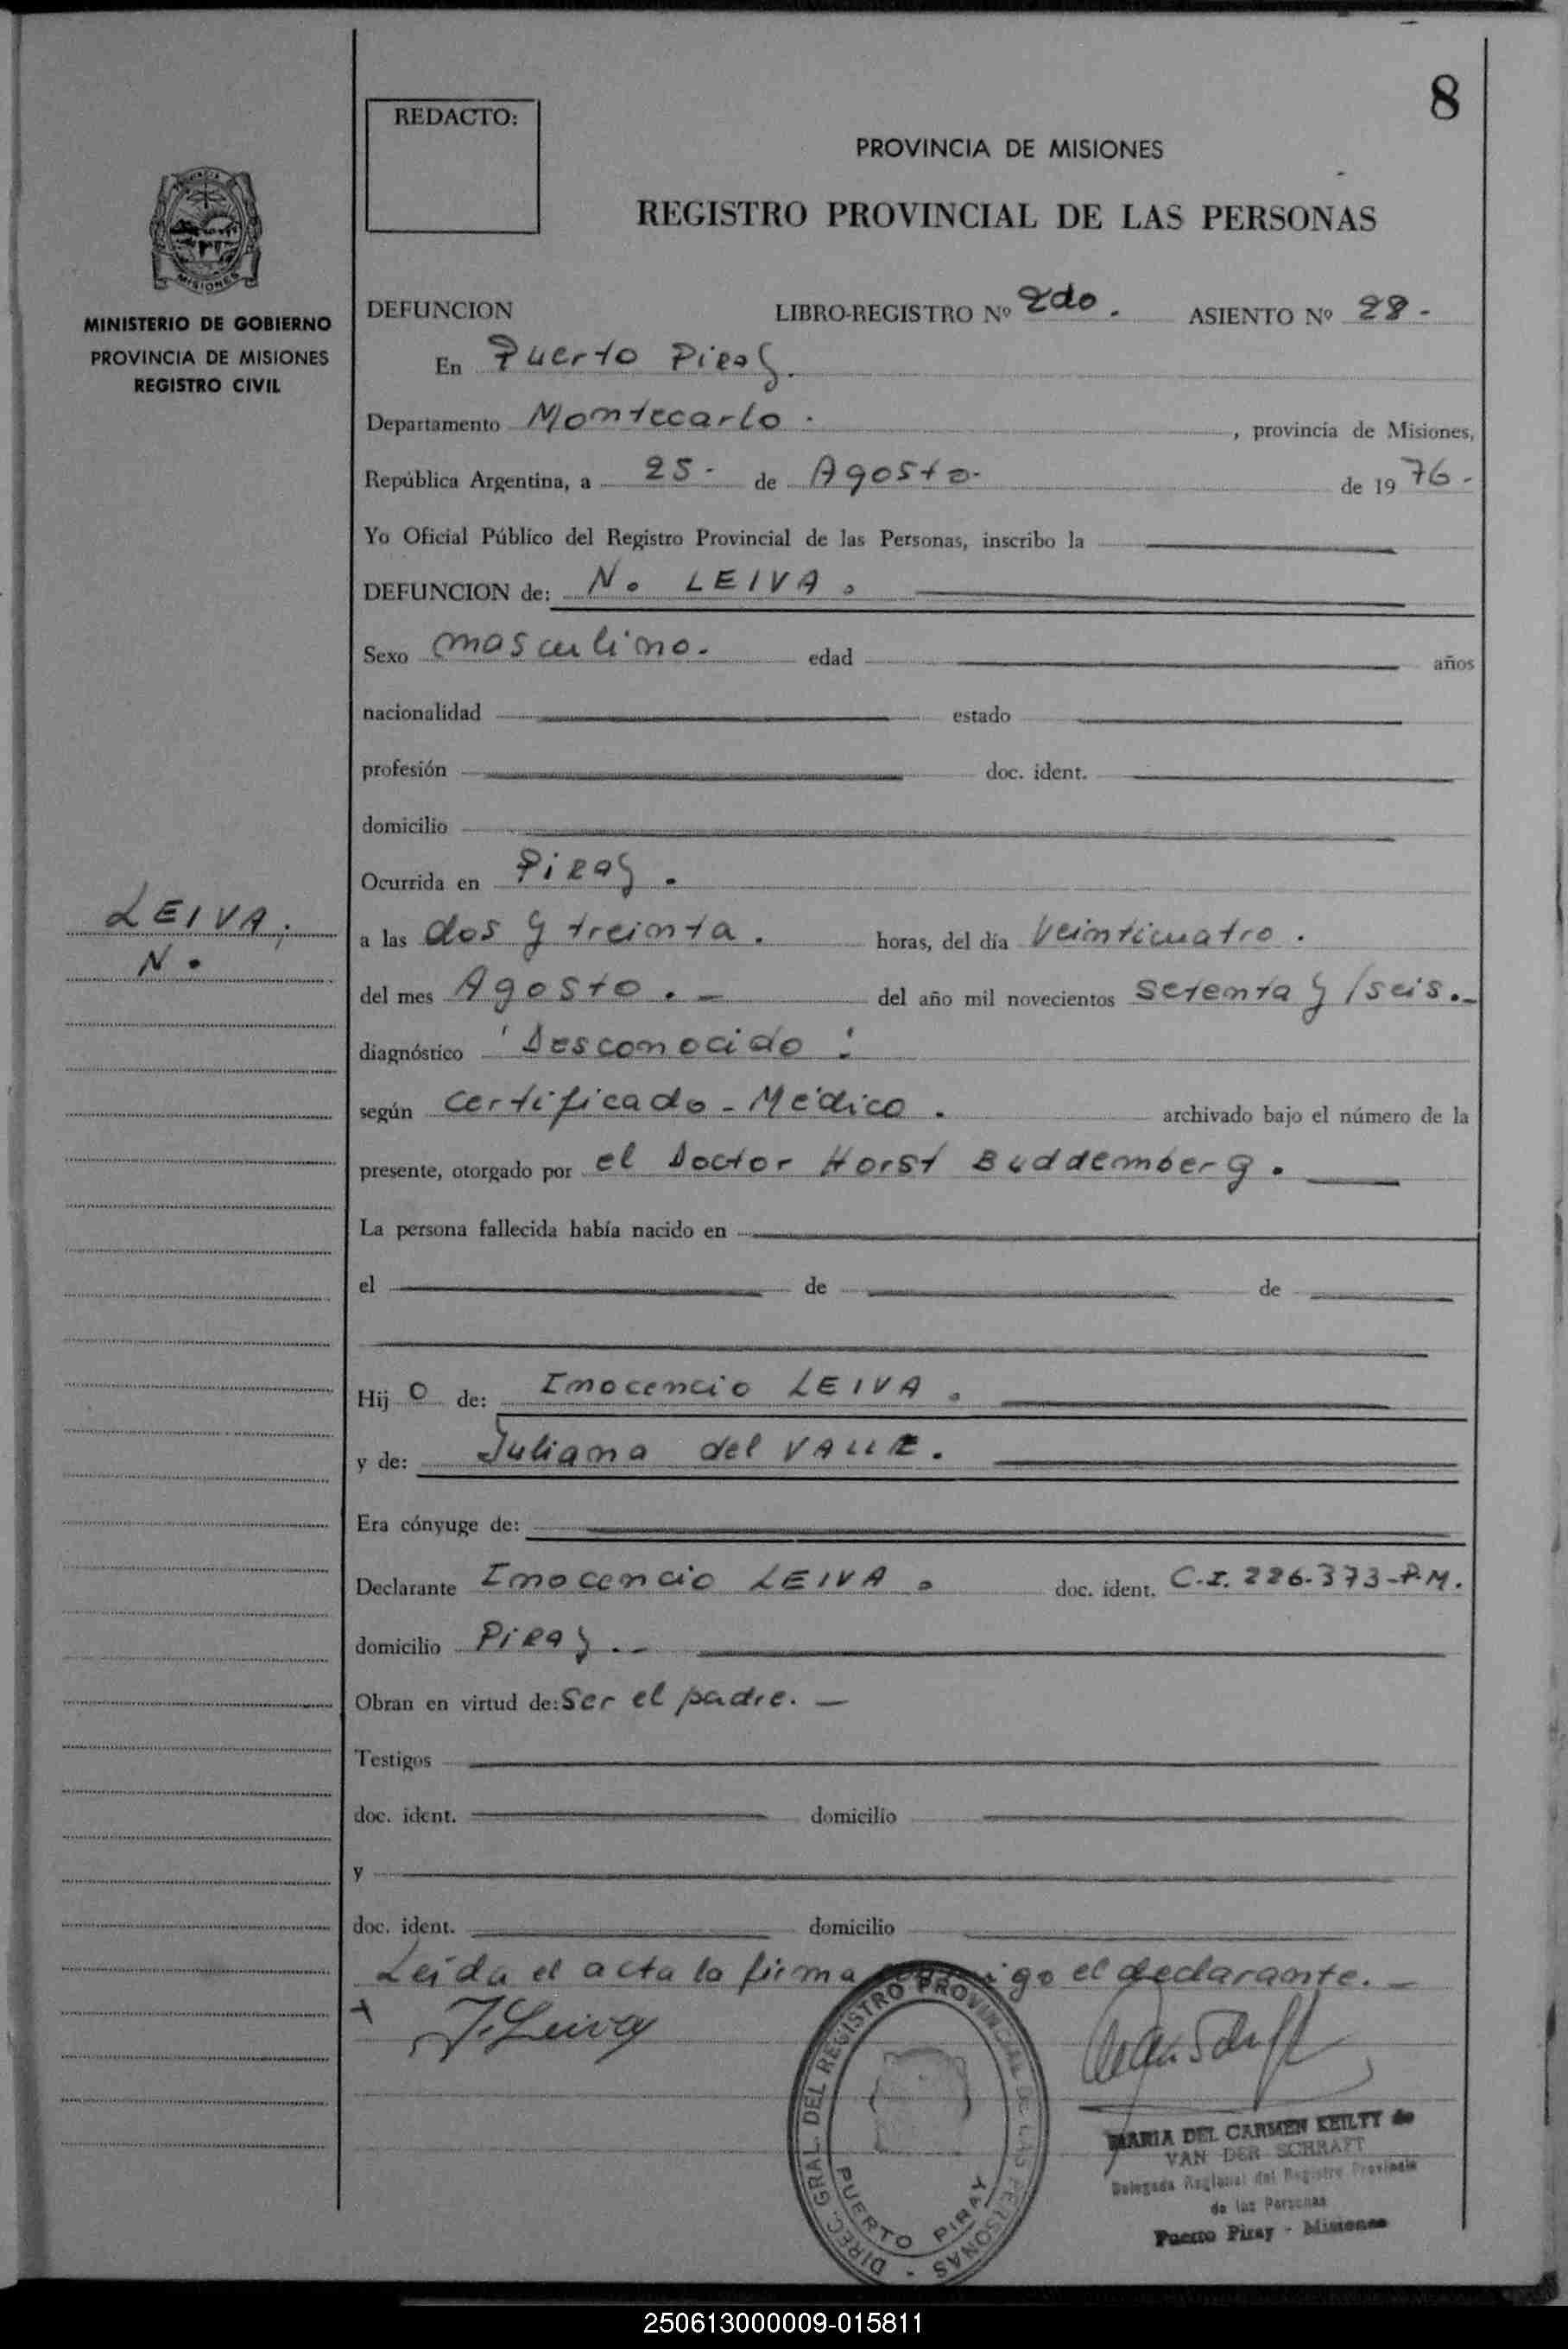 8
REDACTO:
PROVINCIA DE MISIONES
REGISTRO PROVINCIAL DE LAS PERSONAS
MISIONES
MINISTERIO DE GOBIERNO
PROVINCIA DE MISIONES
REGISTRO CIVIL
DEFUNCION LIBRO-REGISTRO Nº 2do. ASIENTO Nº 28-
En Puerto Piray.
Departamento Montecarlo. , provincia de Misiones,
República Argentina, a 25- de Agosto- de 19 76-
Yo Oficial Público del Registro Provincial de las Personas, inscribo la
DEFUNCION de: N. LEIVA.
Sexo masculino. edad años
nacionalidad estado
profesión doc. ident.
domicilio
Ocurrida en Piray.
LEIVA;
N.
a las dos y treinta. horas, del día Veinticuatro.
del mes Agosto.- del año mil novecientos Setenta y /seis.-
diagnóstico "Desconocido":
según Certificado-Médico. archivado bajo el número de la
presente, otorgado por el Doctor Horst Buddemberg.
La persona fallecida había nacido en
el de de
Hij o de: Inocencio LEIVA.
y de: Juliana del VALLE.
Era cónyuge de:
Declarante Inocencio LEIVA. doc. ident. C.I. 226.373-P.M.
domicilio Piray.-
Obran en virtud de: Ser el padre. -
Testigos
doc. ident. domicilio
y
doc. ident. domicilio
Leída el acta la firma conmigo el declarante. -
J. Leiva
DIREC. GRAL. DEL REGISTRO PROVINCIAL DE LAS PERSONAS -
PUERTO PIRAY
MARIA DEL CARMEN KEILTY de
VAN DER SCHRAFT
Delegada Regional del Registro Provincia
de las Personas
Puerto Piray - Misiones
250613000009-015811